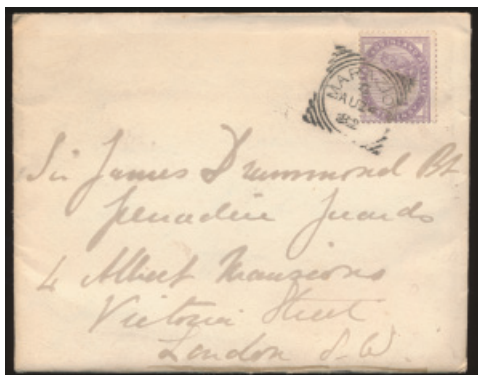 AU
82
Sir James Drummond Bt
Grenadier Guards
4 Albert Mansions
Victoria Street
London S.W.